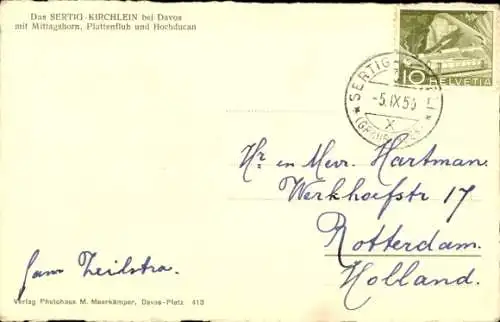 Das SERTIG-KIRCHLEIN bei Davos
mit Mittagshorn, Plattenfluh und Hochducan
10 HELVETIA
SERTIG-
-5.IX.5
X
Hr en Mevr. Hartman.
Werkhofstr 17
Rotterdam.
Holland.
Zeilstra.
Verlag Photohaus M. Meerkämper, Davos-Platz 413